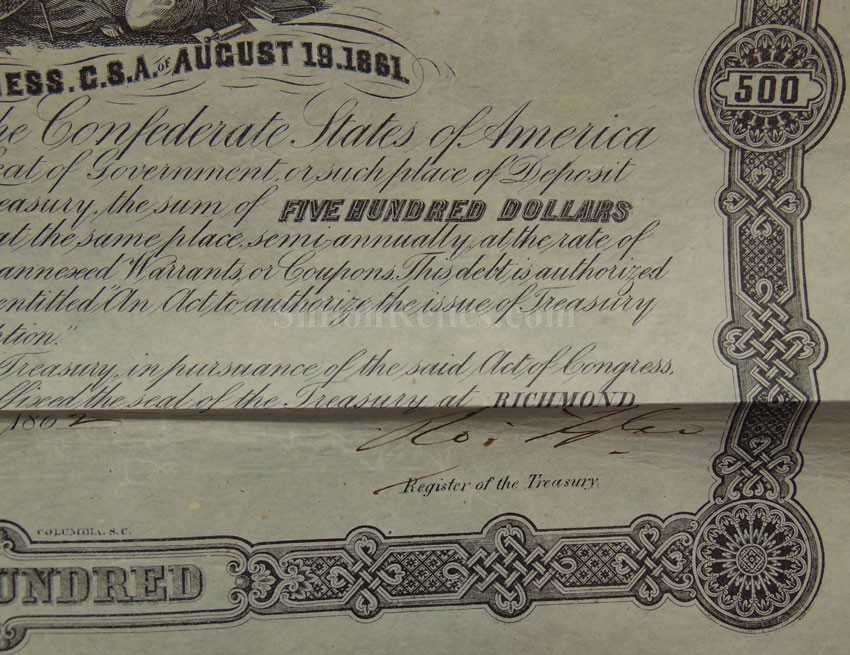 ESS. C.S.A. OF AUGUST 19. 1861.
500
he Confederate States of America
eat of Government, or such place of Deposit
easury, the sum of FIVE HUNDRED DOLLARS
at the same place, semi-annually, at the rate of
annexed Warrants, or Coupons. This debt is authorized
entitled "An Act, to authorize the issue of Treasury
ption."
SimonRelics.com
Treasury, in pursuance of the said Act of Congress,
ffixed the seal of the Treasury, at RICHMOND
1862
Ro. Tyler
Register of the Treasury.
COLUMBIA, S.C.
UNDRED